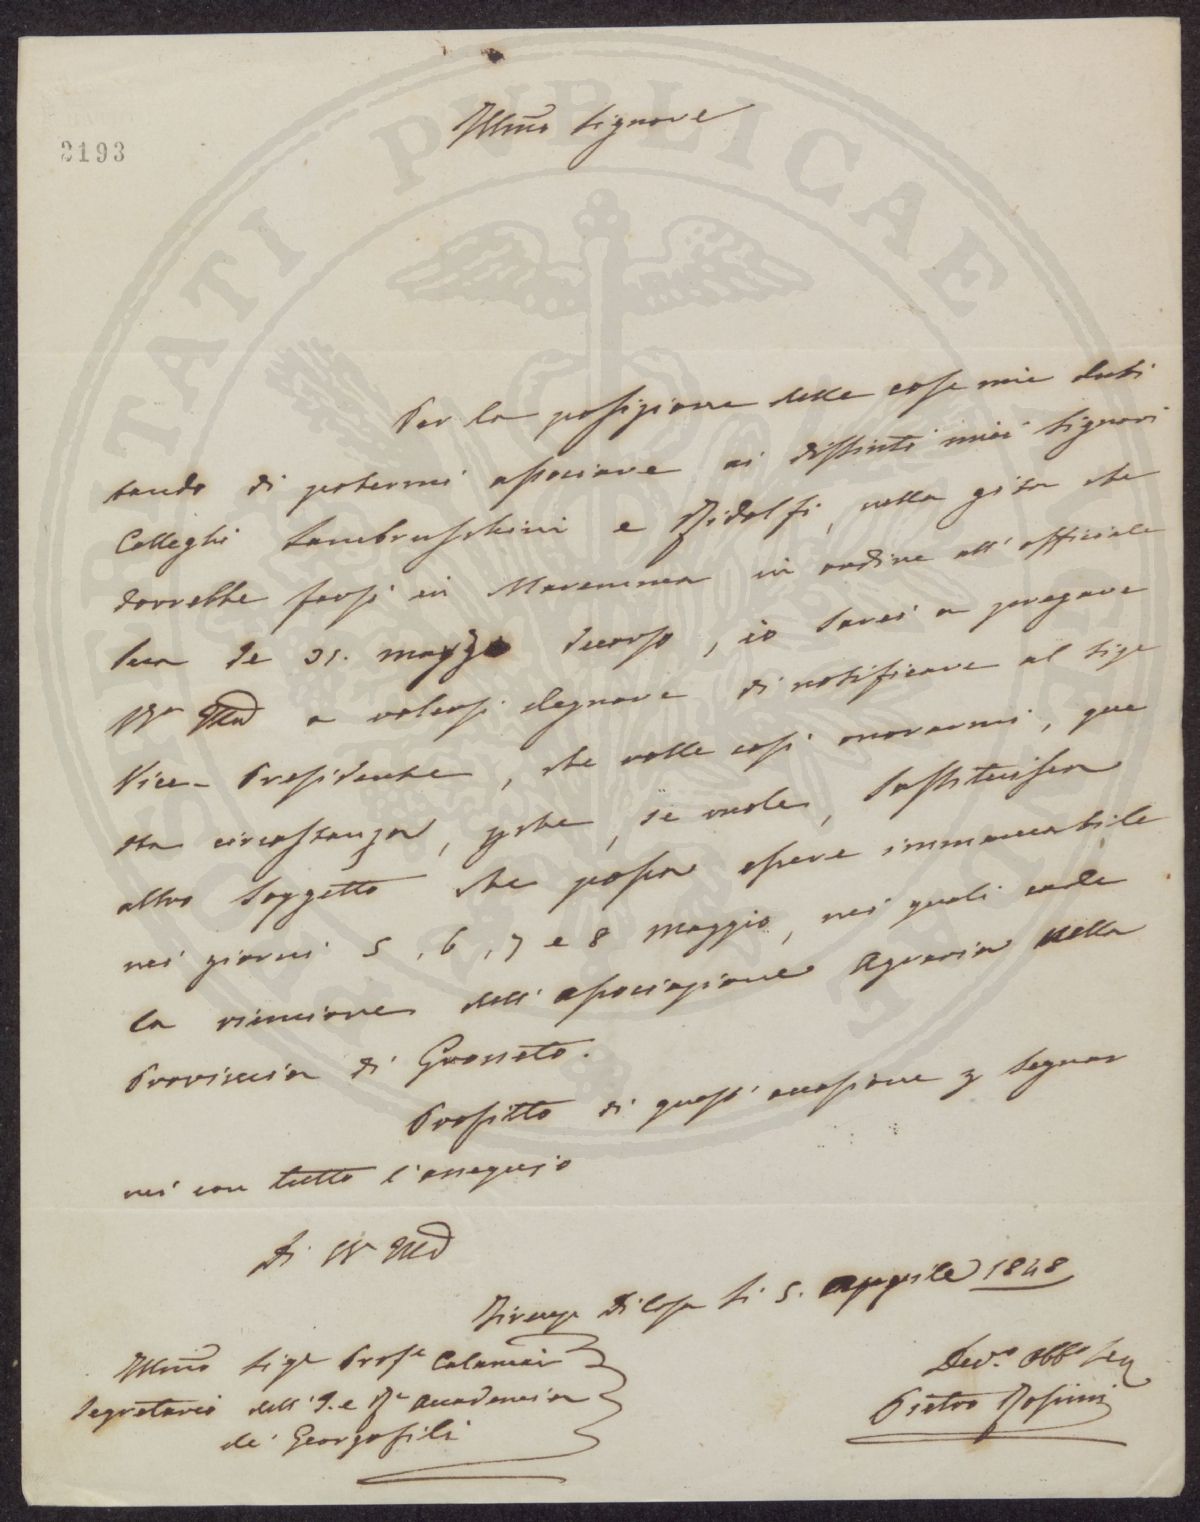 2193
Illmo Signore
Per la posizione delle cose mie dubi
tando di potermi associare ai distinti miei Signori
Colleghi Lambruschini e Ridolfi, nella gita che
dovrebbe farsi in Maremma in ordine all'officiale
Sua de 31. marzo decorso, io sarei a pregare
VS Illma a volersi degnare di notificare al Sigr
Vice-Presidente, che volle così onorarmi, que
sta circostanza, perche, se vuole, sostituisca
altro soggetto che possa essere immancabile
nei giorni 5, 6, 7 e 8 Maggio, nei quali cade
la riunione dell'associazione Agraria della
Provincia di Grosseto.
Profitto di quest'occasione per segnar
mi con tutto l'ossequio
Di VS Illma
Firenze di Casa li 5. Aprile 1848
Illmo Sigr Profe Calamai
Segretario dell'I. e Re Accademia
de' Georgofili
Devo Obbo Ser
Pietro Rossini
PUBLICAE